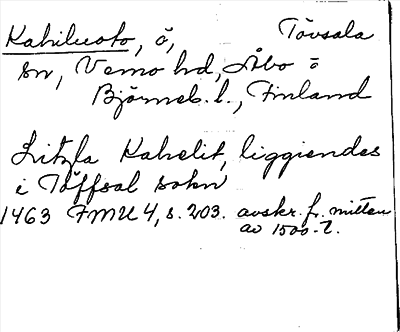 Kahiluoto, ö, Tövsala
sn, Vemo hd, Åbo o
Björneb. l., Finland
Litzla Kahelit, liggiendes
i Töffsal sokn
1463 FMU 4, s. 203. avskr. fr. mitten
av 1500-t.